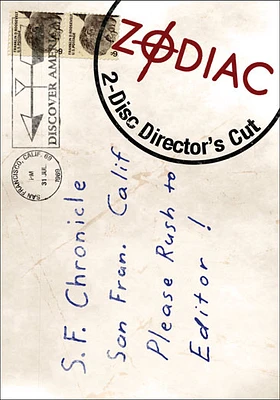 ZODIAC
2-Disc Director's Cut
DISCOVER AMERICA
SAN FRANCISCO, CALIF. 
PM
31 JUL
1969
S.F. Chronicle
San Fran. Calif
Please Rush to
Editor!